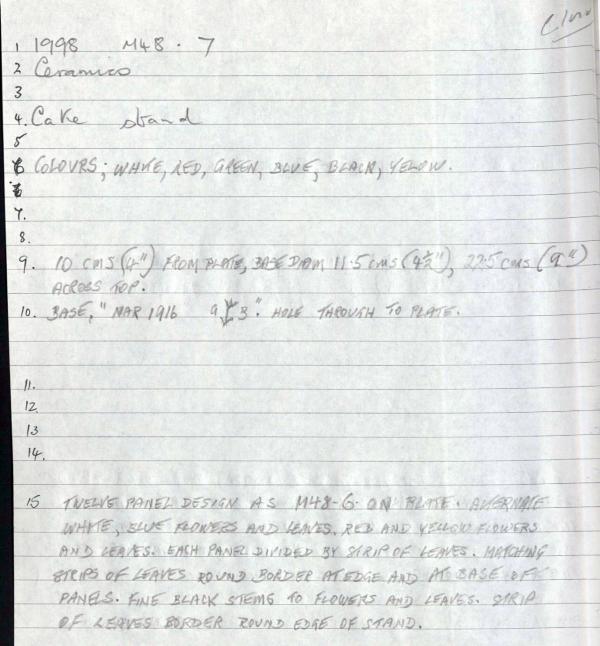 1 1998 M48.7
2 Ceramics
3
4. Cake stand
5
6 COLOURS; WHITE, RED, GREEN, BLUE, BLACK, YELOW.
7.
8.
9. 10 cms (4") FROM PLATE, BASE DIAM 11.5 cms (4½"), 22.5 cms (9")
ACROSS TOP.
10. BASE, "MAR 1916 9 3". HOLE THROUGH TO PLATE.
11.
12.
13
14.
15 TWELVE PANEL DESIGN AS M48-6. ON PLATE. ALTERNATE
WHITE, BLUE FLOWERS AND LEAVES. RED AND YELLOW FLOWERS
AND LEAVES. EACH PANEL DIVIDED BY STRIP OF LEAVES. MATCHING
STRIPS OF LEAVES ROUND BORDER AT EDGE AND AT BASE OF
PANELS. FINE BLACK STEMS TO FLOWERS AND LEAVES. STRIP
OF LEAVES BORDER ROUND EDGE OF STAND.